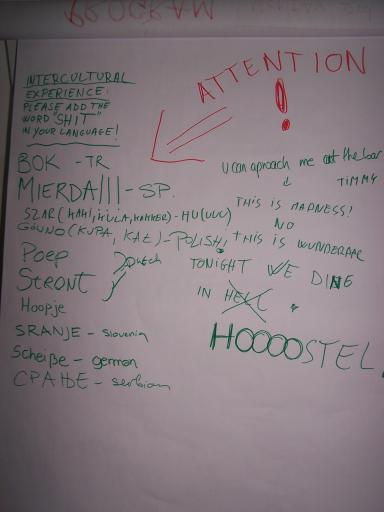 PROGRAM
ATTENTION
!
INTERCULTURAL
EXPERIENCE:
PLEASE ADD THE
WORD "SHIT"
IN YOUR LANGUAGE!
BOK - TR
MIERDA||| - SP.
SZAR (KAKI, HÜLA, KAKKER) - HU (UUU)
GÓWNO (KUPA, KAŁ) - POLISH!
Poep
Stront
Dutch
Hoopje
SRANJE - slovenia
Scheiße - german
СРАЊЕ - serbian
U can aproach me at the bar
TIMMY
THIS IS MADNESS!
NO
THIS IS WUNDERBAR
TONIGHT WE DINE
IN HELL
HOOOOSTEL